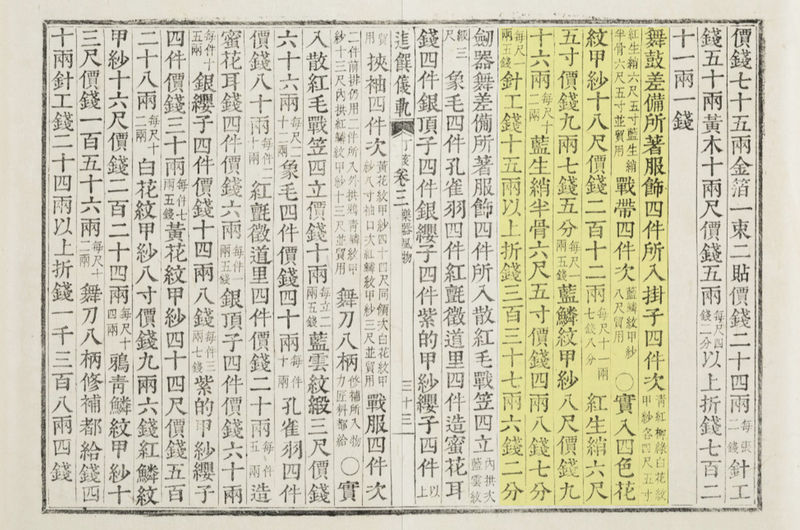 價錢七十五兩金箔一束二貼價錢二十四兩每張二錢針工
錢五十兩黃木十兩尺價錢五兩每尺四錢二分以上折錢七百二
十一兩一錢
舞鼓差備所著服飾四件所入掛子四件次靑紅柳綠白花紋甲紗各四尺五寸
紅生綃六尺五寸藍生綃半骨六尺五寸並貿用戰帶四件次藍鱗紋甲紗八尺貿用○實入四色花
紋甲紗十八尺價錢二百十二兩每尺十一兩七錢八分紅生綃六尺
五寸價錢九兩七錢五分每尺一兩五錢藍鱗紋甲紗八尺價錢九
十六兩每尺十二兩藍生綃半骨六尺五寸價錢四兩八錢七分
每尺兩五錢針工錢十五兩以上折錢三百三十七兩六錢二分
劒器舞差備所著服飾四件所入散紅毛戰笠四立內拱次藍雲紋
緞三尺象毛四件孔雀羽四件紅氈徵道里四件造蜜花耳
錢四件銀頂子四件銀纓子四件紫的甲紗纓子四件以上
進饌儀軌 丁亥 卷三 樂器風物 三十三
貿用挾袖四件次黃花紋甲紗四十四尺同領次白花紋甲紗八寸袖口次紅鱗紋甲紗三尺並貿用戰服四件次
二件前排仍用二件所入外拱鴉靑鱗紋甲紗十三尺內拱紅鱗紋甲紗十三尺並貿用舞刀八柄修補所入物力匠料都給○實
入散紅毛戰笠四立價錢十兩每立二兩五錢藍雲紋緞三尺價錢
六十六兩每尺二十二兩象毛四件價錢四十兩每件十兩孔雀羽四件
價錢八十兩每件二十兩紅氈徵道里四件價錢二十兩每件五兩造
蜜花耳錢四件價錢六兩每件一兩五錢銀頂子四件價錢六十兩
每件十五兩銀纓子四件價錢十四兩八錢每件三兩七錢紫的甲紗纓子
四件價錢三十兩每件七兩五錢黃花紋甲紗四十四尺價錢五百
二十八兩每尺十二兩白花紋甲紗八寸價錢九兩六錢紅鱗紋
甲紗十六尺價錢二百二十四兩每尺十四兩鴉靑鱗紋甲紗十
三尺價錢一百五十六兩每尺十二兩舞刀八柄修補都給錢四
十兩針工錢二十四兩以上折錢一千三百八兩四錢